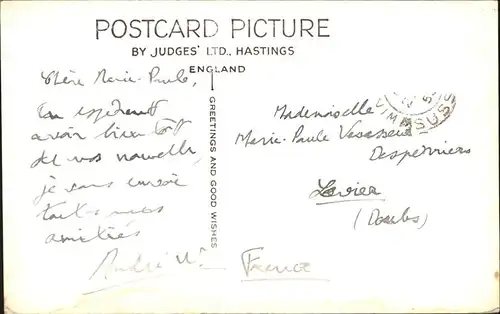 POSTCARD PICTURE
BY JUDGES' LTD., HASTINGS
ENGLAND
GREETINGS AND GOOD WISHES
Chère Marie-Paule,
En espérant
avoir bien tôt
de vos nouvelles,
je vous envoie
toutes mes
amitiés
André
Mademoiselle
Marie-Paule
Desperriers
Levier
(Doubs)
France
SUSS